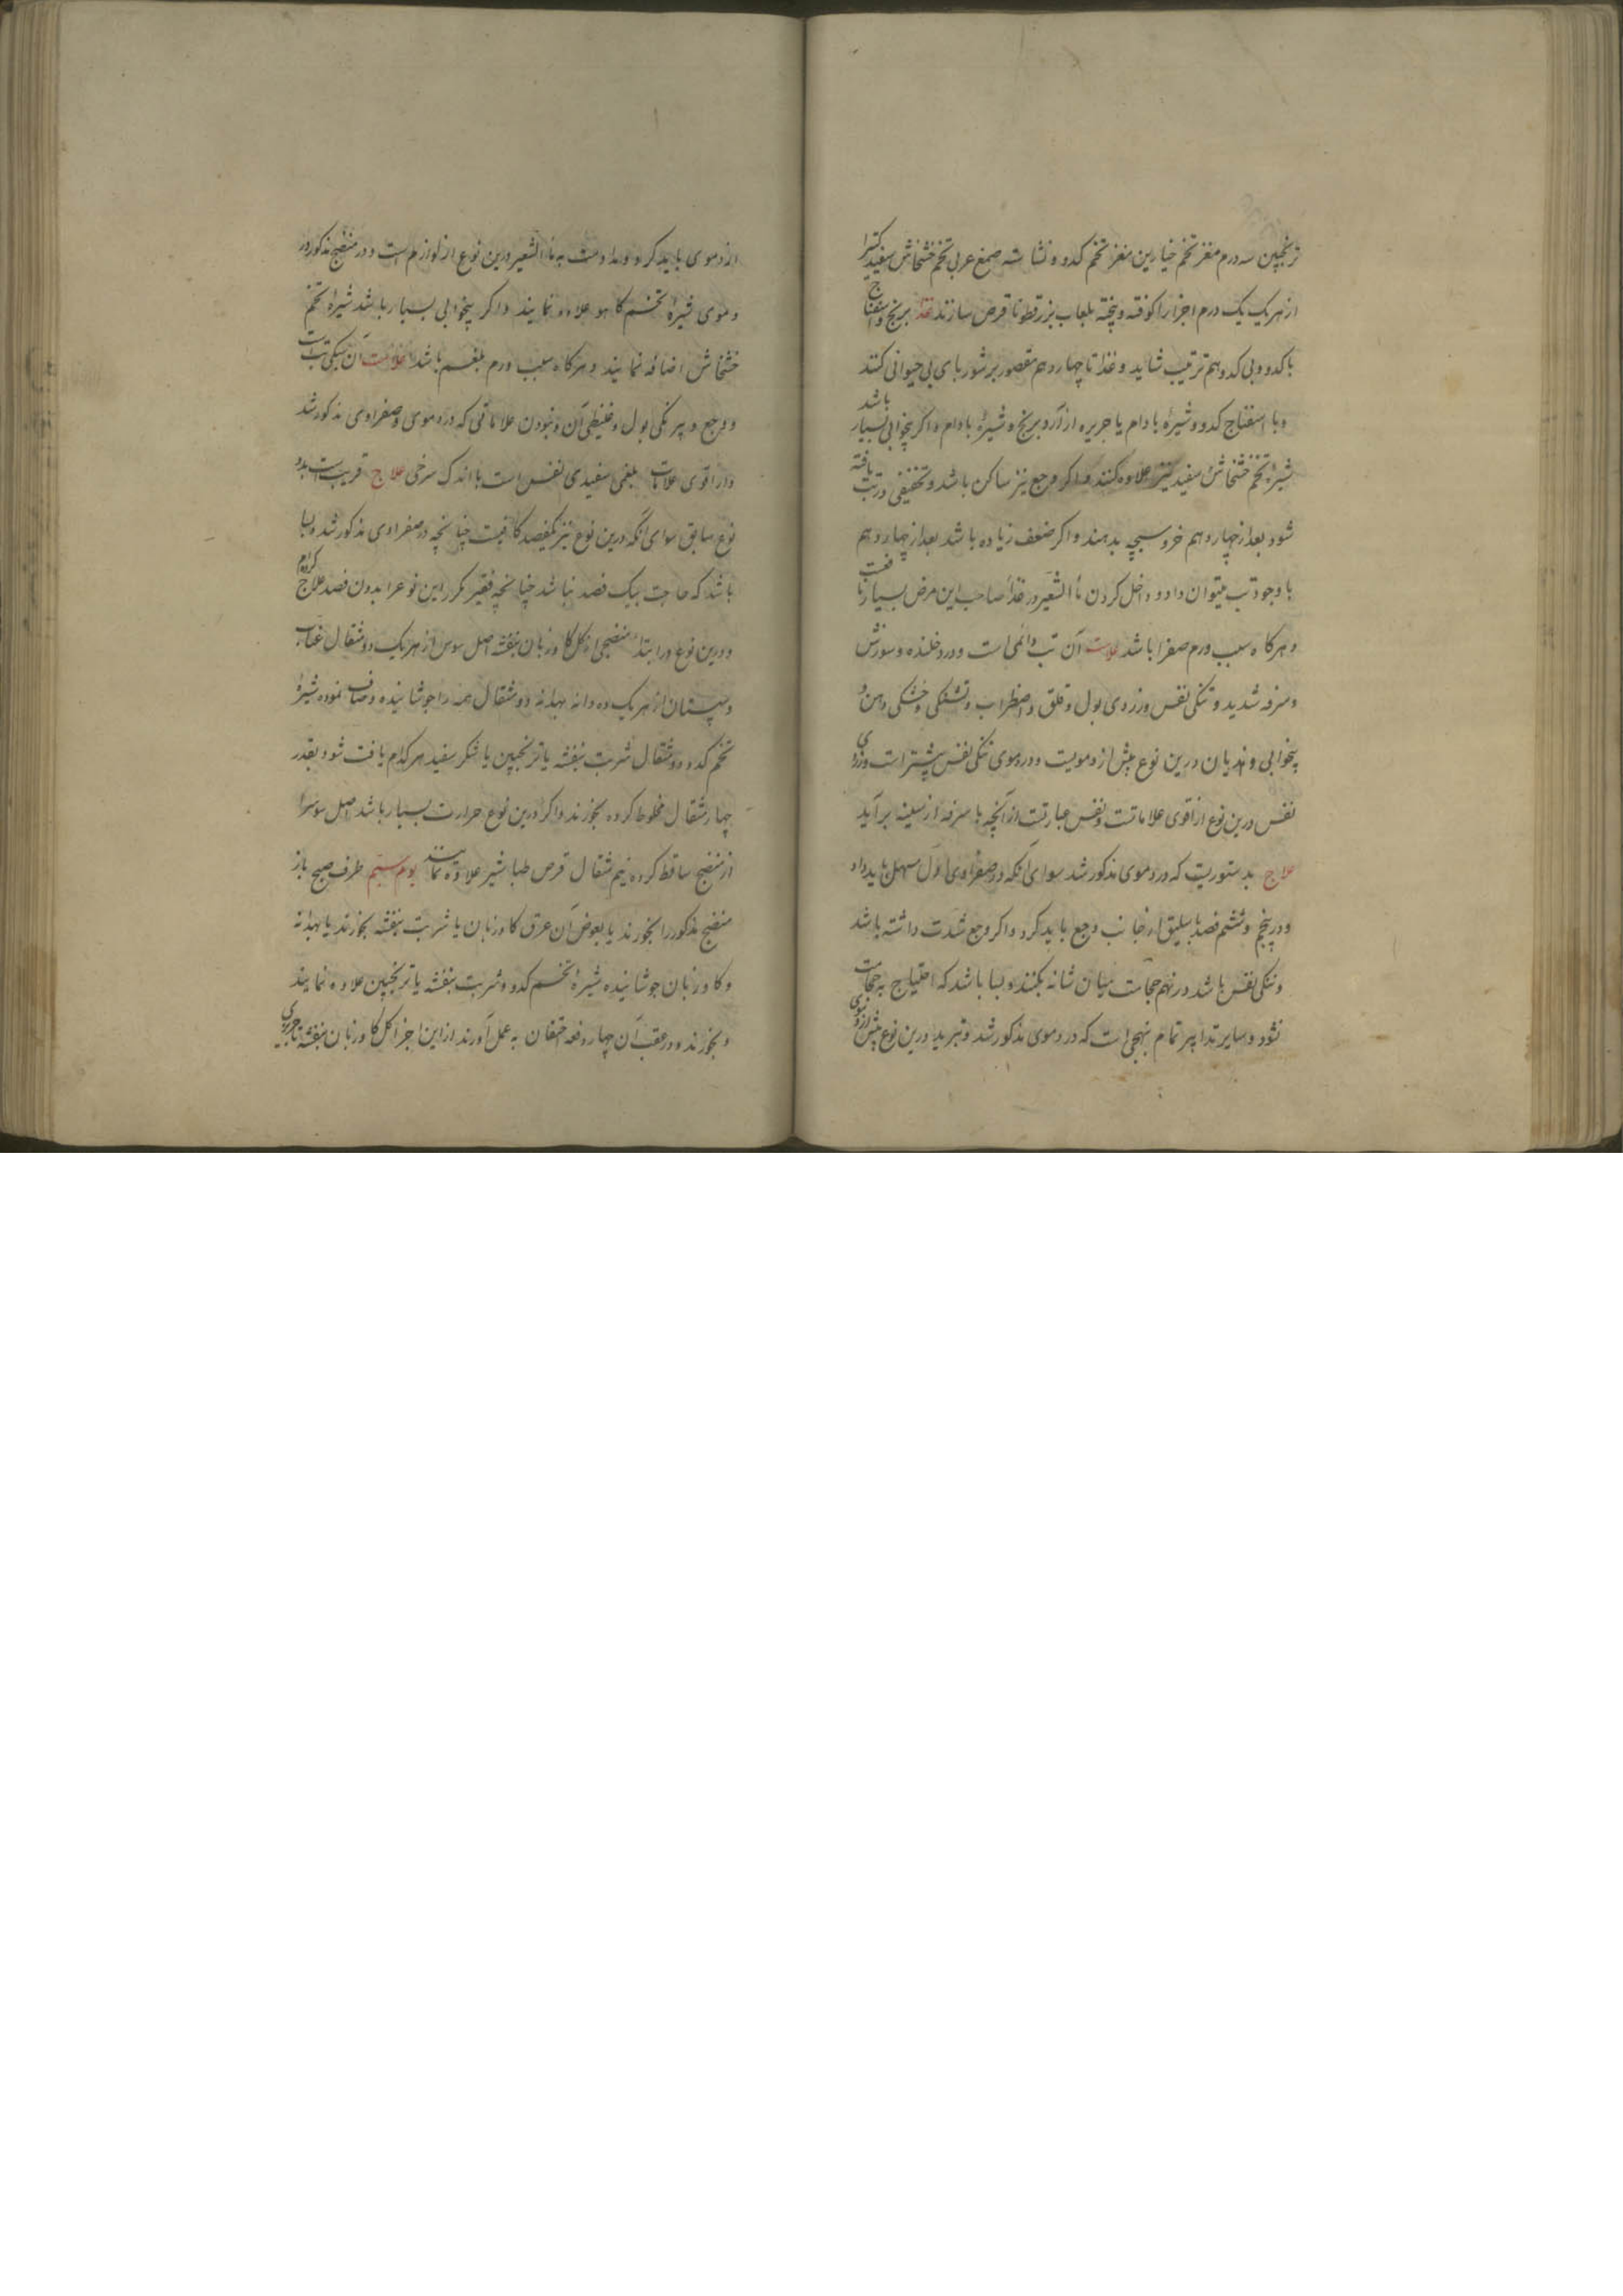 ترنجبین سه درم مغز تخم خیارین مغز تخم کدو و نشاسته صمغ عربی تخم خشخاش سفید کتیرا
از هر یک یک درم اجزا را کوفته و پخته بلعاب بزرقطونا قرص سازند غذا برنج و اسفناج
با کدو و بی کدو هم ترتیب شاید و غذا تا چهاردهم مقصور بر شوربای بی حیوانی کنند
و با اسفناج کدو و شیرهٔ بادام یا حریره از آرد برنج و شیرهٔ بادام و اکر بیخوابی بسیار باشد
شیرهٔ تخم خشخاش سفید نیز علاوه کنند و اکر وجع نیز ساکن باشد و تخفیفی در تب یافته
شود بعد از چهاردهم خروس بچه بدهند و اکر ضعف زیاده باشد بعد از چهاردهم
با وجود تب میتوان داد و داخل کردن مأ الشعیر در غذأ صاحب این مرض بسیار نافعست
و هرکاه سبب ورم صفرا باشد علامت آن تب دائمی است و درد خلنده و سوزش
و سرفه شدید و تنکی نفس و زردی بول و قلق و اضطراب و تشنکی و خشکی دهن و
بیخوابی و هذیان درین نوع بیش از دمویست و در دموی تنکی نفس بیشتر است و زردی
نفس درین نوع از اقوی علاماتست و نفس عبارتست از آنچه با سرفه از سینه برآید
علاج بدستوریست که در دموی مذکور شد سوای آنکه در صفراوی اول مسهل باید داد
و در پنجم و ششم فصد باسلیق از جانب وجع باید کرد و اکر وجع شدت داشته باشد
و تنکی نفس باشد در نهم حجامت میان شانه بکنند و بسا باشد که احتیاج به حجامت
نشود و سایر تدابیر تمام بنهجی است که در دموی مذکور شد و تبرید درین نوع بیش از دموی
از دموی باید کرد و مداومت به مأ الشعیر درین نوع از لوازم است و در منضج مذکور در
دموی شیرهٔ تخم کاهو علاوه نمایند و اکر بیخوابی بسیار باشد شیرهٔ تخم
خشخاش اضافه نمایند و هرکاه سبب ورم بلغم باشد علامت آن سبکی تب است
و وجع و پیرنکی بول و غلیظی آن و نبودن علاماتی که در دموی و صفراوی مذکور شد
و از اقوی علامات بلغمی سفیدی نفس است با اندک سرخی علاج قریب است بدو
نوع سابق سوای آنکه درین نوع نیز یکفصد کافیست چنانچه در صفراوی مذکور شد و بسا
باشد که حاجت بیک فصد نباشد چنانچه فقیر مکرر این نوع را بدون فصد علاج کرده‌ام
و درین نوع در ابتدا منضجی از کل کاوزبان بنفشه اصل سوس از هر یک دو مثقال عناب
و سپستان از هر یک ده دانه بهدانه دو مثقال همه را جوشانیده و صاف نموده شیرهٔ
تخم کدو دو مثقال شربت بنفشه یا ترنجبین یا شکر سفید هر کدام یافت شود بقدر
چهار مثقال مخلوط کرده بخورند و اکر درین نوع حرارت بسیار باشد اصل سوس را
از منضج ساقط کرده نیم مثقال قرص طباشیر علاوه نمایند یوم سیم طرف صبح باز
منضج مذکور را بخورند یا بعوض آن عرق کاوزبان با شربت بنفشه بخورند یا بهدانه
و کاوزبان جوشانیده شیرهٔ تخم کدو و شربت بنفشه یا ترنجبین علاوه نمایند
و بخورند و در عقب آن چهار دفعه احتقان به عمل آورند از این اجزا کل کاوزبان بنفشه تاجریزی